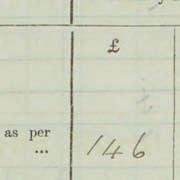 £
as per
... 146